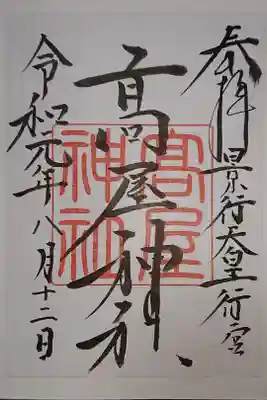 奉拝 景行天皇行宮
高屋神社
髙屋神社
令和元年八月十二日